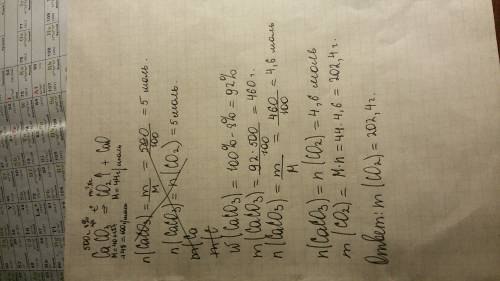 500г. 8% m, г.
CaCO₃ ⇒ CO₂↑ + CaO
M = 44г/моль
n(CaCO₃) = m/M = 500/100 = 5 моль.
n(CaCO₃) = n(CO₂) = 5 моль.
W(CaCO₃) = 100% - 8% = 92%
m(CaCO₃) = 92 · 500/100 = 460 г.
n(CaCO₃) = m/M = 460/100 = 4,6 моль
n(CaCO₃) = n(CO₂) = 4,6 моль
m(CO₂) = M·n = 44 · 4,6 = 202,4 г.
Ответ: m(CO₂) = 202,4 г.